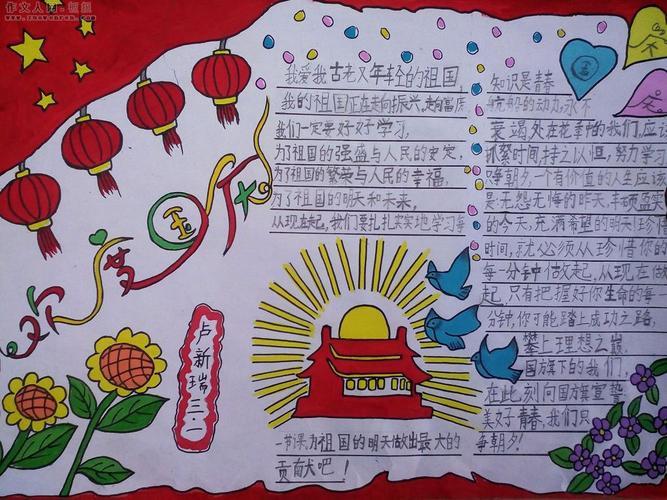 作文人网·恒组
www.zuowenren.com
欢度国庆
卢新瑞三.
我爱我古老又年轻的祖国,
我的祖国正在走向振兴,走向富庶
我们一定要好好学习,
为了祖国的强盛与人民的安定,
为了祖国的繁荣与人民的幸福,
为了祖国的明天和未来,
从现在起,我们要扎扎实实地学习每
一节课,为祖国的明天做出最大的
贡献吧!
知识是青春
航船的动力,永不
衰竭处在花季的我们,应该
抓紧时间,持之以恒,努力学习
只争朝夕一个有价值的人生应该
是:无怨无悔的昨天,丰硕盈实
的今天,充满希望的明天!珍惜
时间,就必须从珍惜你的
每一分钟做起,从现在做
起,只有把握好你生命的每一
分钟,你可能踏上成功之路,
攀上理想之巅.
国旗下的我们,
在此刻向国旗宣誓
美好青春,我们只
争朝夕!